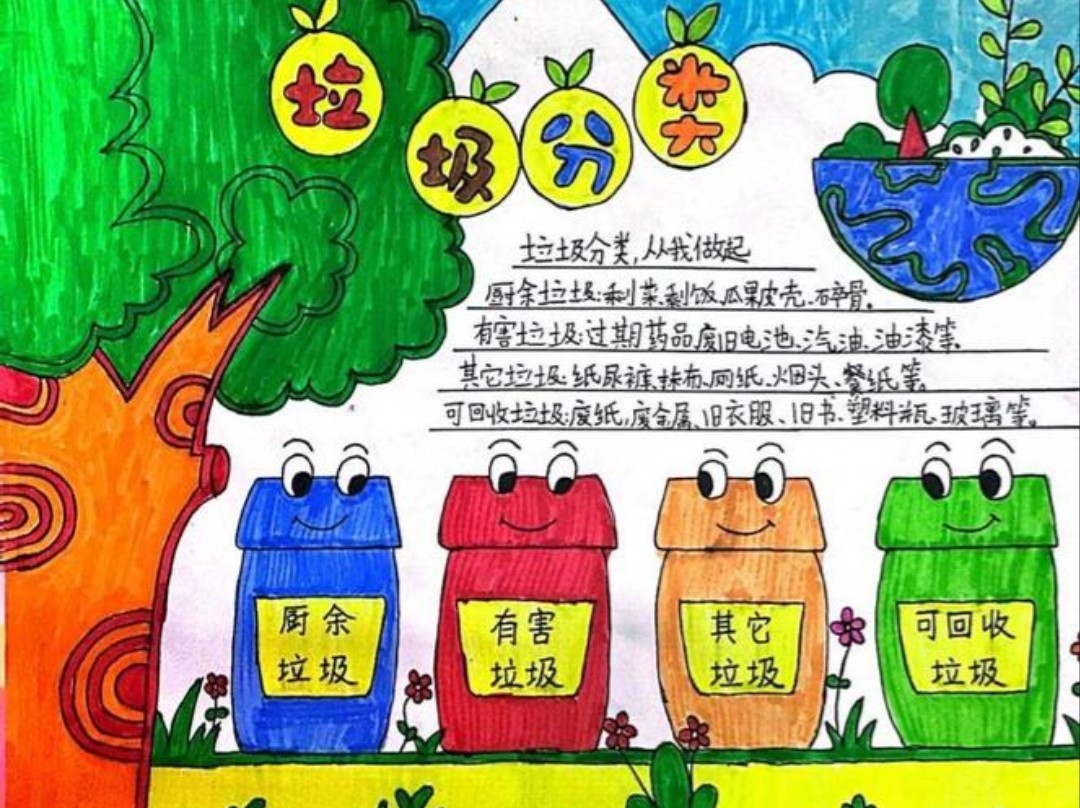 垃圾分类
垃圾分类,从我做起
厨余垃圾:剩菜剩饭、瓜果皮壳、碎骨。
有害垃圾:过期药品、废旧电池、汽油、油漆等。
其它垃圾:纸尿裤、抹布、厕纸、烟头、餐纸等。
可回收垃圾:废纸,废金属、旧衣服、旧书、塑料瓶、玻璃等。
厨余
垃圾
有害
垃圾
其它
垃圾
可回收
垃圾